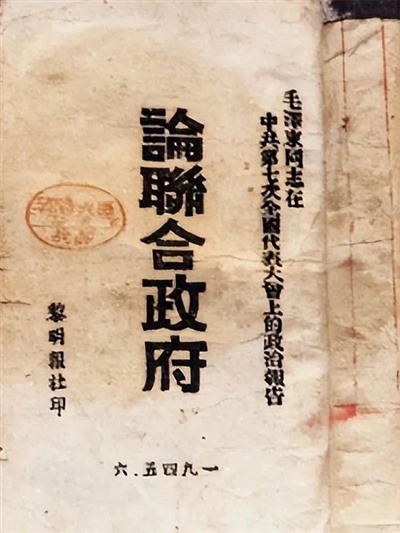 毛澤東同志在
中共第七次全國代表大會上的政治報告
論聯合政府
黎明報社印
一九四五.六